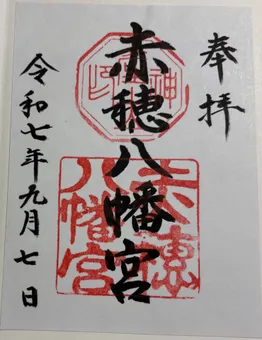 奉拝
赤穂八幡宮
赤穂八幡宮
令和七年九月七日